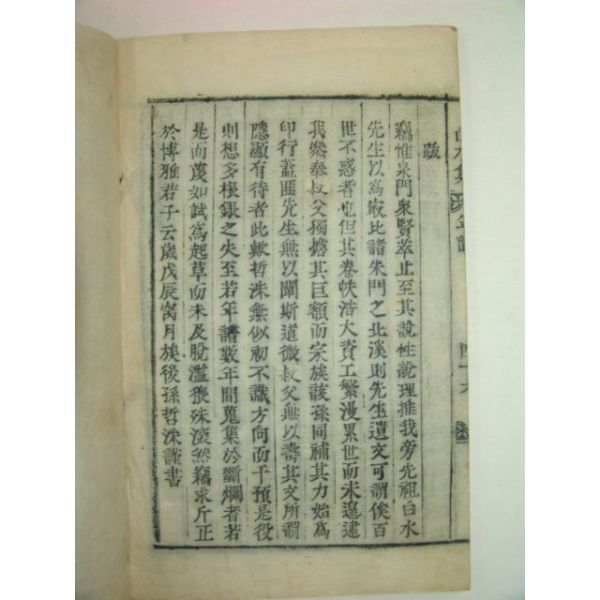 白水集 年譜
四十六
跋
竊惟泉門衆賢萃止至其說性說理推我旁先祖白水
先生以爲最比諸朱門之北溪則先生遺文可謂俟百
世不惑者也但其卷帙浩大資工繁漫累世而未遑逮
我燮奉叔父獨擔其巨額而宗族該孫同補其力始爲
印行蓋匪先生無以闡斯道微叔父無以壽其文所謂
隱顯有待者此歟哲洙無似初不識方向而干預是役
則想多根銀之失至若年譜數年間蒐集於斷爛者若
是而蔑如試爲起草而未及脫濫猥殊深然竊求斤正
於博雅君子云歲戊辰窩月族後孫哲洙謹書